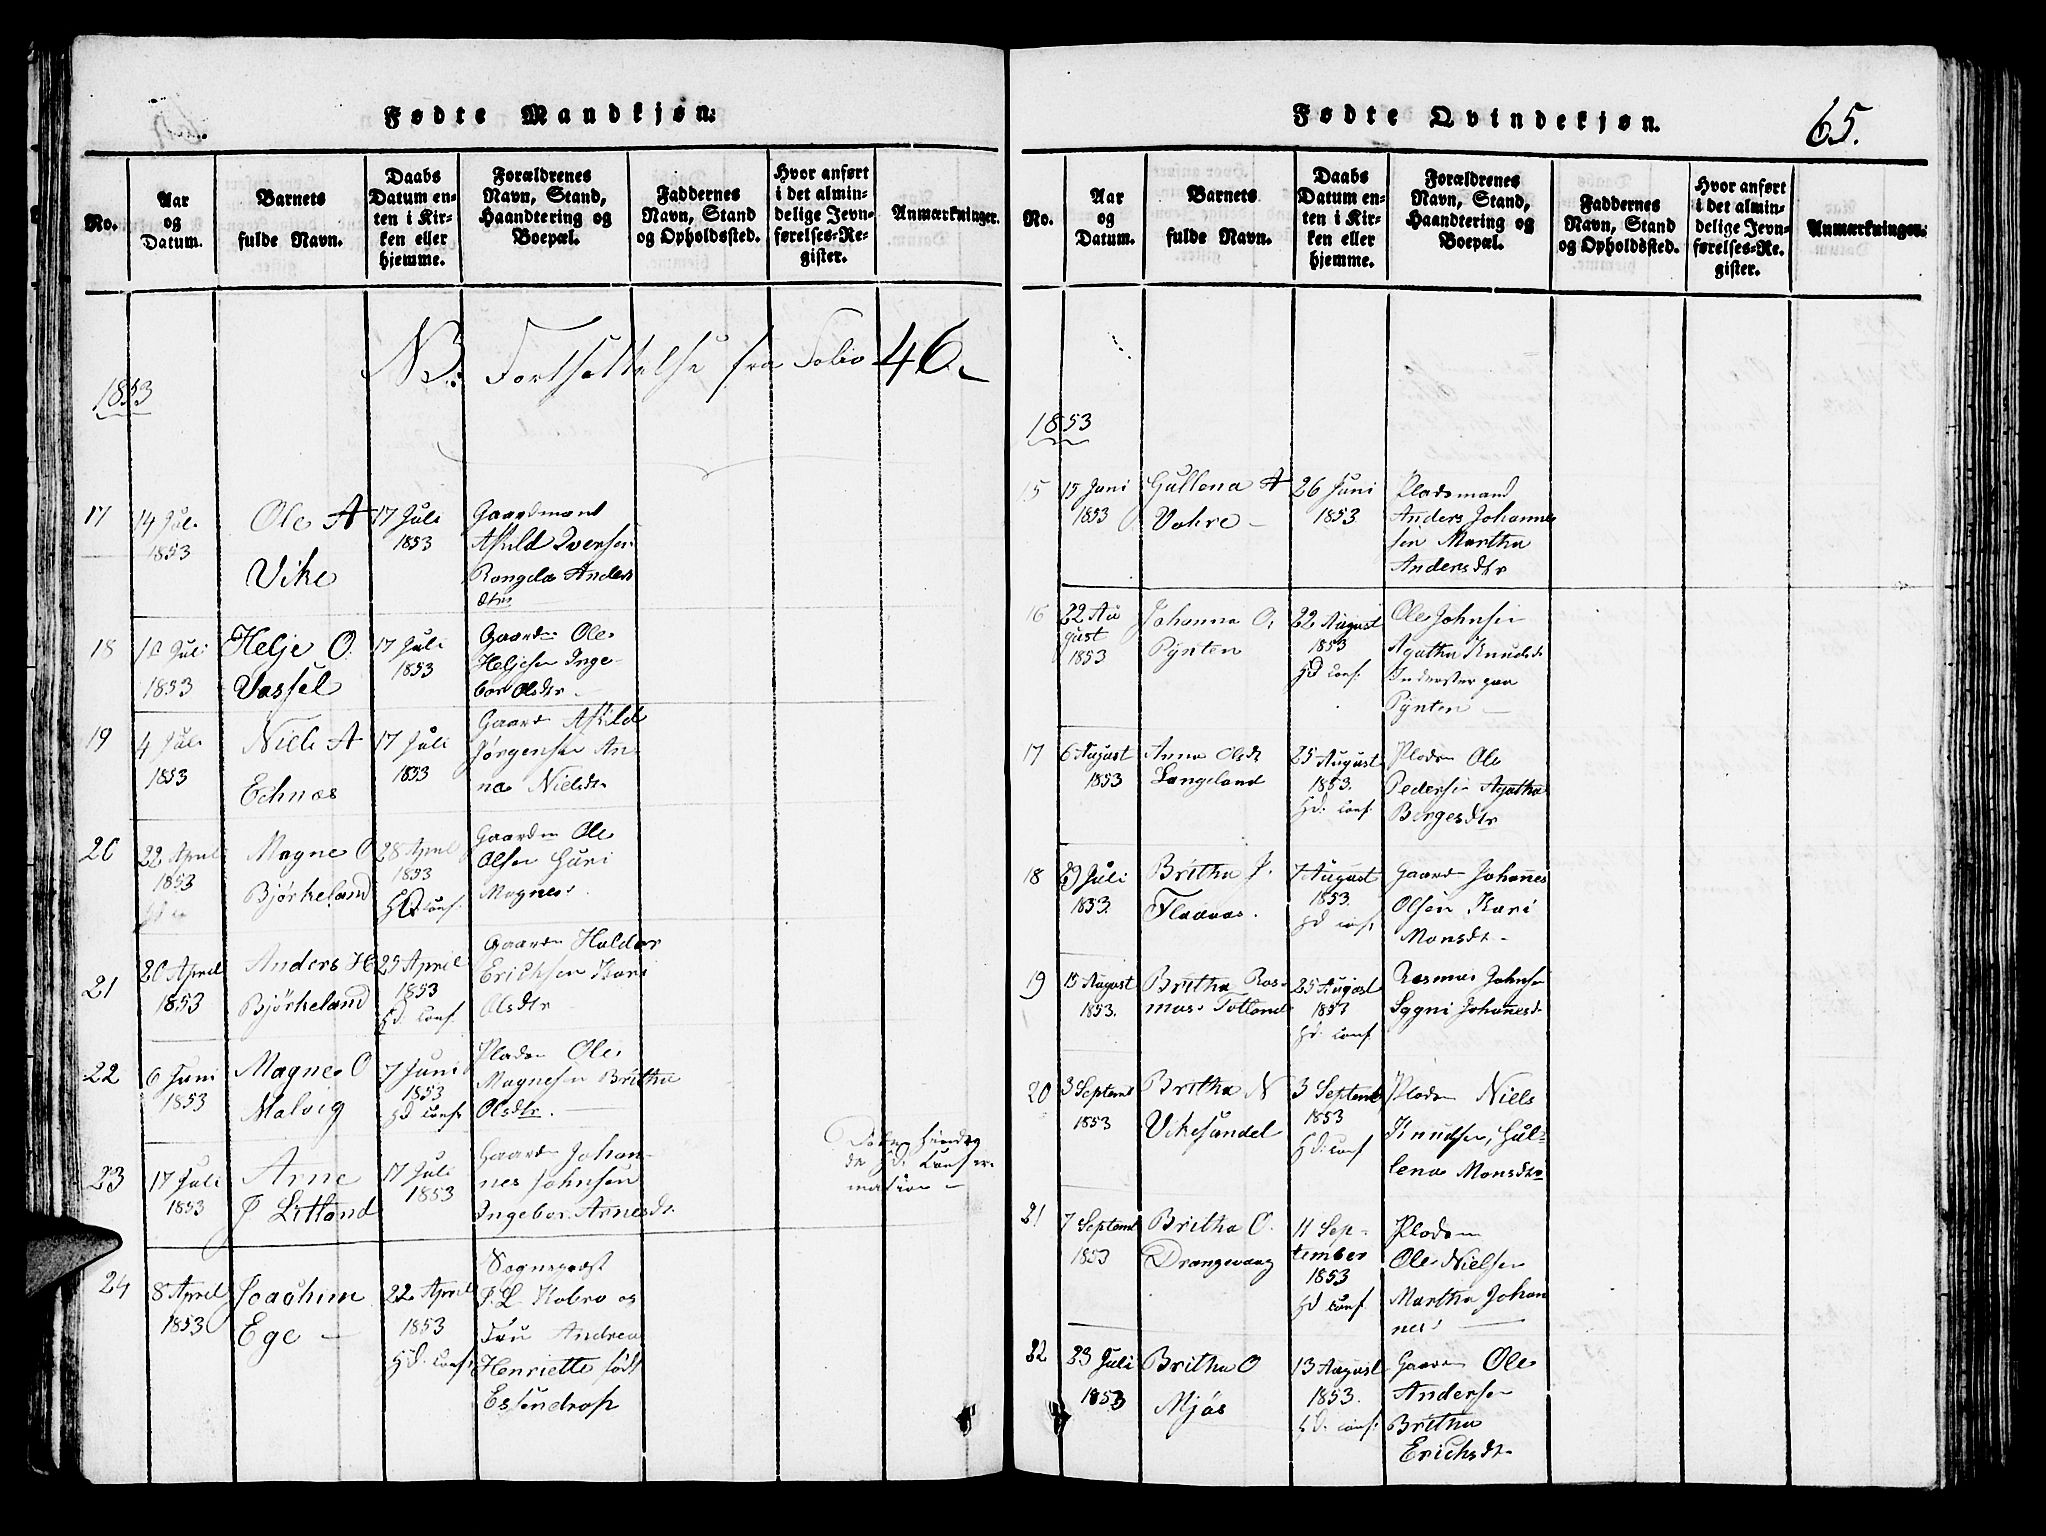 Fødte Mandkjøn.
No.
Aar
og
Datum.
Barnets
fulde Navn.
Daabs
Datum en-
ten i Kir-
ken eller
hjemme.
Forældrenes
Navn, Stand,
Haandtering og
Boepæl.
Faddernes
Navn, Stand
og Opholdssted.
Hvor anført
i det almin-
delige Jevn-
førelses-Re-
gister.
Anmærkninger.
NB: Fortsættelse fra Folio 46.
1853
17
14 Juli
1853
Ole A
Vike
17 Juli
1853
Gaardmand
Askild Iversen
Rangela Anders
dtr
18
10 Juli
1853
Helje O.
Vassel
17 Juli
1853
Gaardm Ole
Heljesen Inge-
bor Olsdtr
19
4 Juli
1853
Niels A
Echnæs
17 Juli
1853
Gaardm Askild
Jørgensen An-
na Nielsdtr
20
22 April
1853
Magne O
Bjørkeland
28 April
1853
HD Conf.
Gaardm Ole
Olsen Guri
Magnes.
21
20 April
1853
Anders H
Bjørkeland
25 April
1853
Hd. Conf.
Gaardm Haldor
Erichsen Kari
Olsdtr
22
6 Juni
1853
Magne O
Malvig
7 Juni
1853
Hd Conf.
Pladsm Ole
Magnesen Britha
Olsdtr.
23
17 Juli
1853
Arne
J Litland
17 Juli
1853
Gaardm Johan-
nes Johnsen
Ingebor Arnesdtr
Hd. Confer-
mation
24
8 April
1853
Joachim
Ege
22 April
1853
Hd. Conf.
Sognepræst
J. L. Kobro og
Fru Andrea
Henriette født
Essendrop
Fødte Qvindekjøn.
65.
No.
Aar
og
Datum.
Barnets
fulde Navn.
Daabs
Datum en-
ten i Kir-
ken eller
hjemme.
Forældrenes
Navn, Stand,
Haandtering og
Boepæl.
Faddernes
Navn, Stand
og Opholdssted.
Hvor anført
i det almin-
delige Jevn-
førelses-Re-
gister.
Anmærkninger.
1853
15
15 Juni
1853
Gullena A
Vahre
26 Juni
1853
Pladsmand
Anders Johannes
sen Martha
Andersdtr
16
22 Au
gust
1853
Johanna O.
Pynten
22 August
1853
HD Conf.
Ole Johnsen
Agatha Knudsdr
Inderster paa
Pynten
17
6 August
1853
Anna Olsdt
Langeland
25 August
1853.
Hd. Conf.
Pladsm Ole
Pedersen Agatha
Børgesdtr
18
29 Juli
1853.
Britha J.
Flaanæs.
7 August
1853.
Hd Conf.
Gaardm Johannes
Olsen Kari
Monsdt
19
15 August
1853.
Britha Ras-
mus. Totland
25 August
1853
Hd. Conf.
Rasmus Johnsen
Sygni Johanesdr
20
3 Septemb
1853
Britha N
Vikesundel
3 Septemb
1853
Hd. Conf
Pladsm Niels
Knudsen, Gul-
lena Monsdtr
21
7 Septemb
1853
Britha O.
Drangevaag
11 Sep-
tember
1853
Hd Conf.
Pladsm
Ole Nielsen
Martha Johan
nes.
22
23 Juli
1853
Britha O
Mjøs
13 August
1853.
Hd. Conf.
Gaardm Ole
Andersen
Britha
Erichsdt